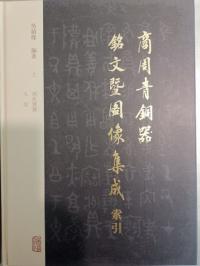 商周青銅器
銘文暨圖像集成 索引
吳鎮烽 編著
上